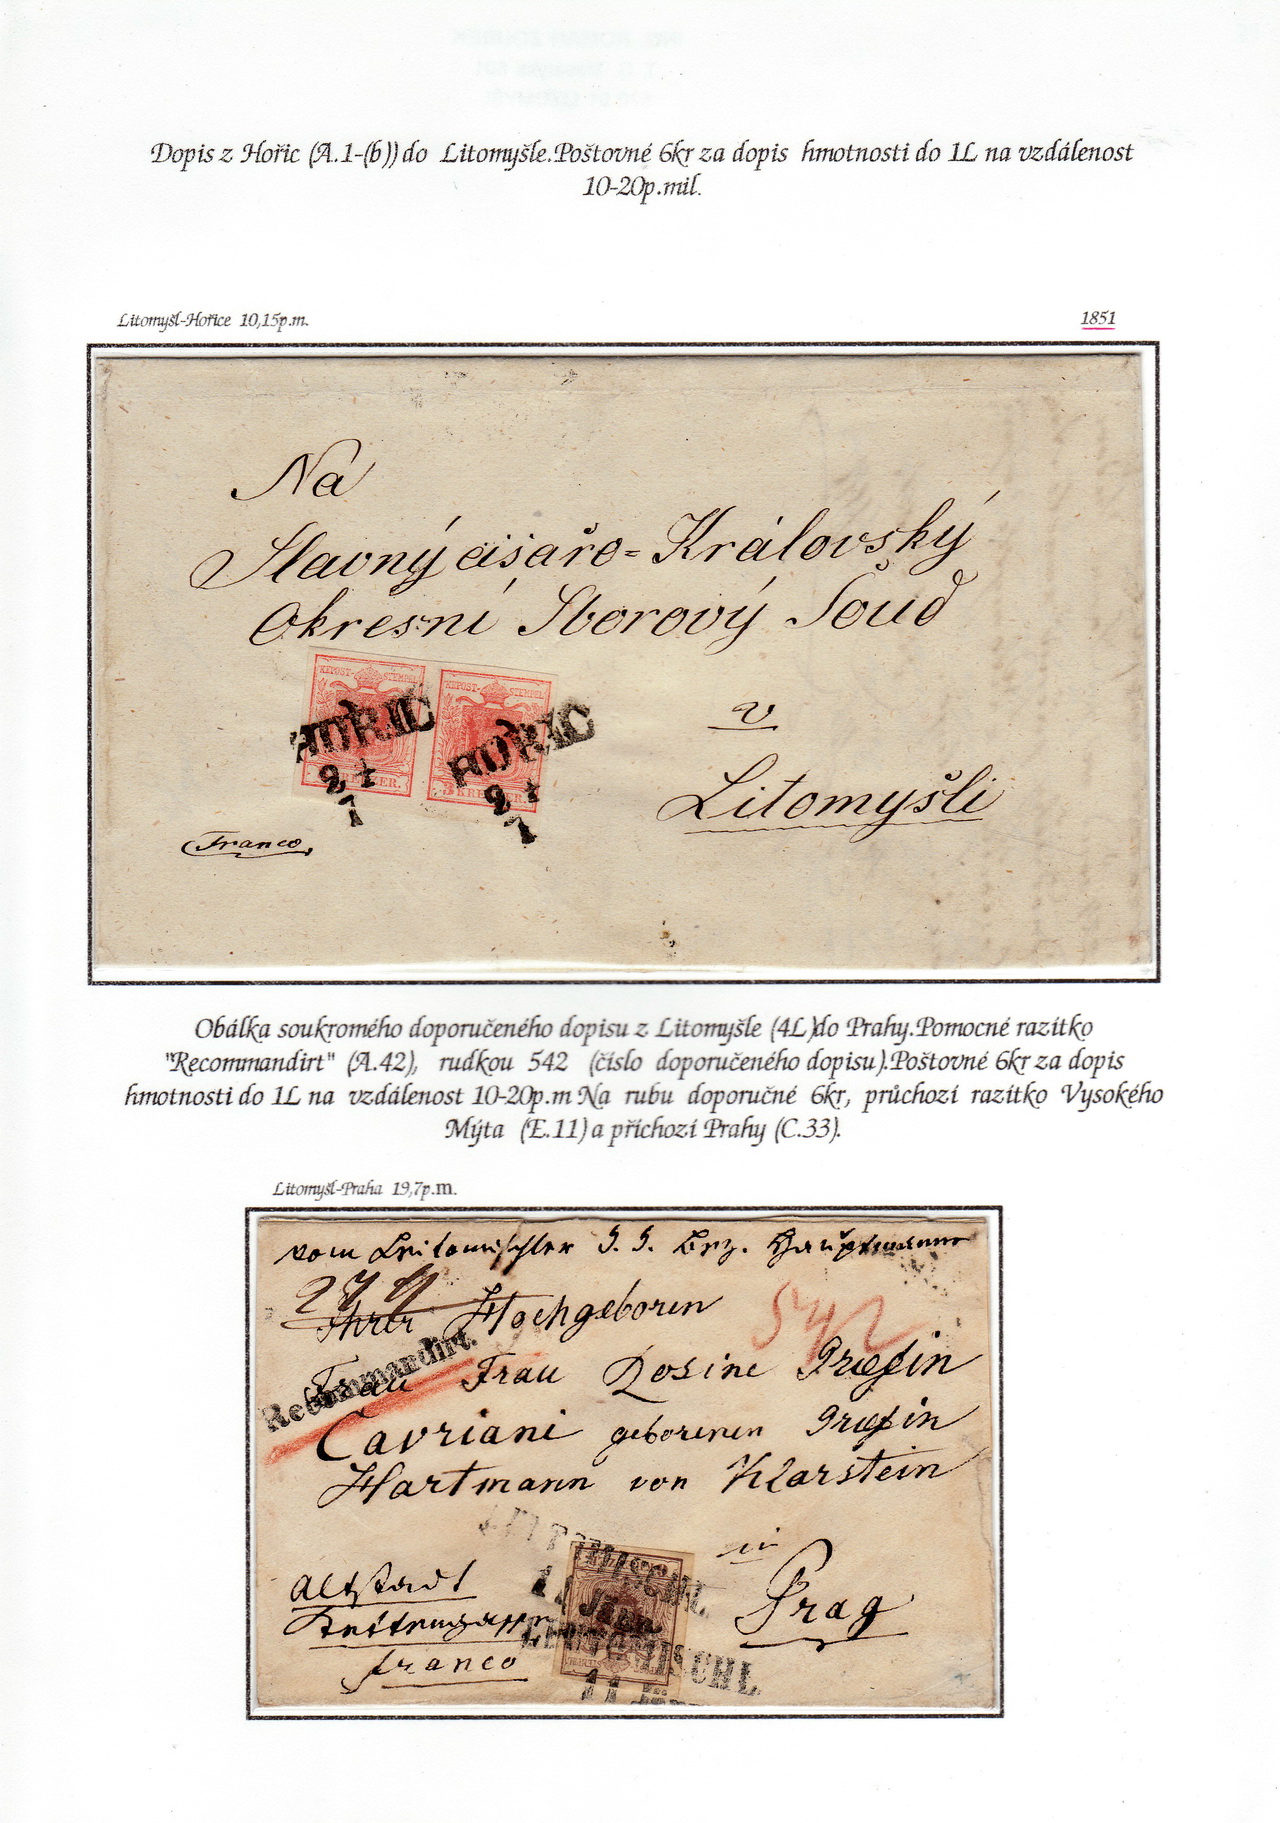 Dopis z Hořic (A.1-(b)) do Litomyšle.Poštovné 6kr za dopis hmotnosti do 1L na vzdálenost
10-20p.mil.
Litomyšl-Hořice 10,15p.m.
1851
Na
Slavný cišařo=Královský
Okresní Sborový Soud
KKPOST-STEMPEL
KKPOST-STEMPEL
HORIC
HORIC
24
7
24
7
3 KREUZER.
v
Litomyšli
Franco
Obálka soukromého doporučeného dopisu z Litomyšle (4L)do Prahy.Pomocné razítko
"Recommandirt" (A.42), rudkou 542 (číslo doporučeného dopisu).Poštovné 6kr za dopis
hmotnosti do 1L na vzdálenost 10-20p.m Na rubu doporučné 6kr, průchozí razítko Vysokého
Mýta (E.11) a příchozí Prahy (C.33).
Litomyšl-Praha 19,7p.m.
vom Leitomischler J. J. Hauptmann
542
Ihrer Hochgeboren
Recommandirt.
Frau Frau Rosine Græfin
Cavriani geborenen Græfin
Hartmann von Klarstein
in
Prag
Altstadt
franco
LEITOMISCHL
11 Jän
LEITOMISCHL
11 Jän